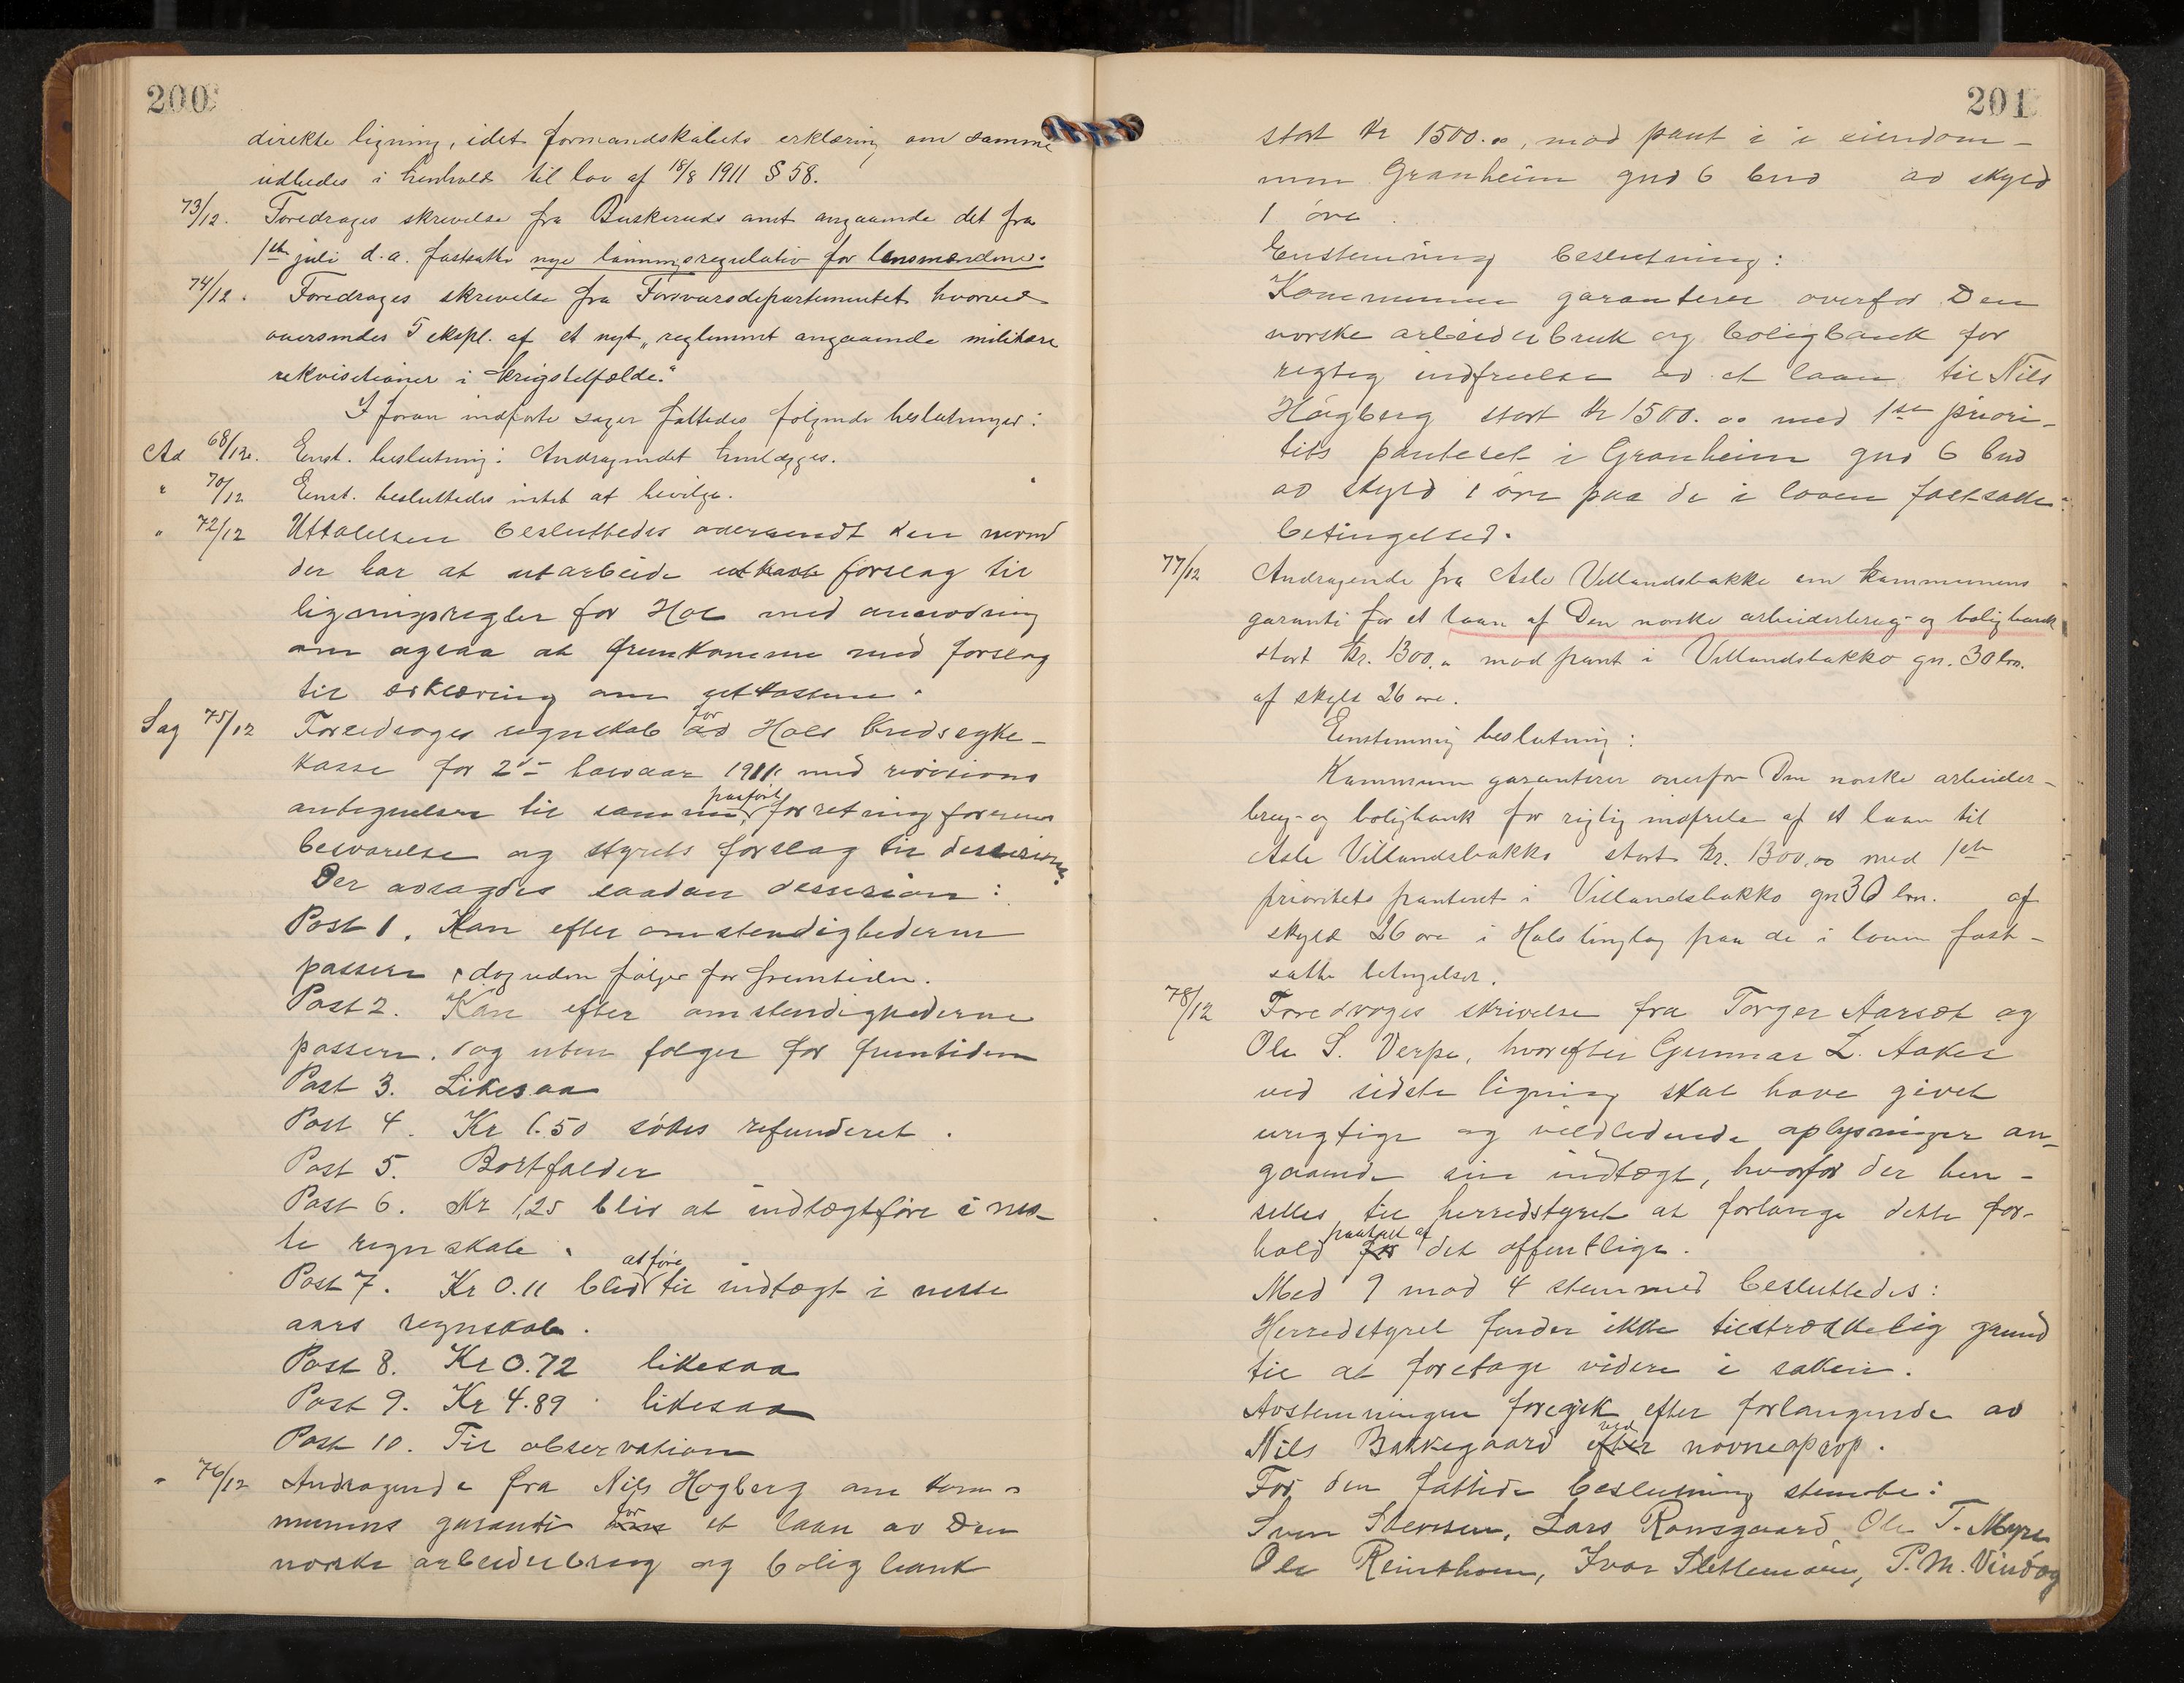 200
direkte ligning, idet formandskabets erklæring om samme
udbedes i henhold til lov af 18/8 1911 § 58.
73/12. Foredroges skrivelse fra Buskeruds amt angaaende det fra
1ste juli d.a. fastsatte nye lønningsregulativ for lensmændene.
74/12. Foredroges skrivelse fra Forsvarsdepartementet hvorved
oversendes 5 ekspl. af et nyt „reglement angaaende militære
rekvisitioner i krigstilfælde."
I foran indførte sager fattedes følgende beslutninger:
Ad 68/12. Enst. beslutning: Andragendet henlægges.
" 70/12 Enst. besluttedes intet at bevilge.
" 72/12 Uttalelsen besluttedes oversendt den nevnd
der har at utarbeide utkast forslag til
ligningsregler for Hol med anmodning
om ogsaa at fremkomme med forslag
til erklæring om
Sag 75/12 Foredroges regnskab av for Hols bredsygke-
kasse for 2det halvaar 1911 med revisions
antegnelser til samme, paaført forretningsførerens
besvarelse og styrets forslag til desision.
Der avsagdes saadan desision:
Post 1. Kan efter omstendighederne
passere, dog uden følger for fremtiden.
Post 2. Kan efter omstendighederne
passere, dog uten følger for fremtiden
Post 3. Likesaa
Post 4. Kr 1.50 søkes refunderet.
Post 5. Bortfalder
Post 6. Kr 1,25 blir at indtægtføre i nes-
te regnskab.
Post 7. Kr 0.11 blir at føre til indtægt i neste
aars regnskab.
Post 8. Kr 0.72 likesaa
Post 9. Kr 4.89 likesaa
Post 10. Til observation
" 76/12 Andragende fra Nils Høgberg om kom-
munens garanti for et laan av Den
norske arbeiderbrug og bolig bank
201
stort kr 1500.00, mod pant i i eiendom-
men Granheim gno 6 bno av skyld
1 øre.
Enstemmig beslutning:
Kommunen garanterer overfor Den
norske arbeiderbruk og boligbank for
rigtig indfrielse av et laan til Nils
Högberg stort kr 1500.00 med 1ste priori-
tets panteret i Granheim gno 6 bno
av skyld 1 øre paa de i loven fastsatte
betingelser.
77/12 Andragende fra Asle Villandsbakke om kommunens
garanti for et laan af Den norske arbeiderbrug- og boligbank
stort kr. 1300,00 mod pant i Villandsbakko gn. 30 bn.
af skyld 26 øre.
Enstemmig beslutning:
Kommunen garanterer overfor Den norske arbeider-
brug- og boligbank for rigtig indfrielse af et laan til
Asle Villandsbakko stort kr. 1300,00 med 1ste
prioritets panteret i Villandsbakko gn 30 bn. af
skyld 26 øre i Hols tinglag paa de i loven fast-
satte betingelser.
78/12 Foredroges skrivelse fra Torger Aarset og
Ole S. Verpe, hvorefter Gunnar L. Aaker
ved sidste ligning skal have givet
urigtige og vildledende oplysninger an-
gaaende sin indtægt, hvorfor der hen-
stilles til herredstyret at forlange dette for-
hold for paatalt af det offentlige.
Med 9 mod 4 stemmer besluttedes:
Herredstyret finder ikke tilstrækkelig grund
til at foretage videre i saken.
Avstemningen foregik efter forlangende av
Nils Bakkegaard efter ved navneoprop.
For den fattede beslutning stemte:
Sven Stensen, Lars Ramsgaard Ole T. Myre
Ole Reinthon, Ivar Slettemoen, P. M. Vindeg